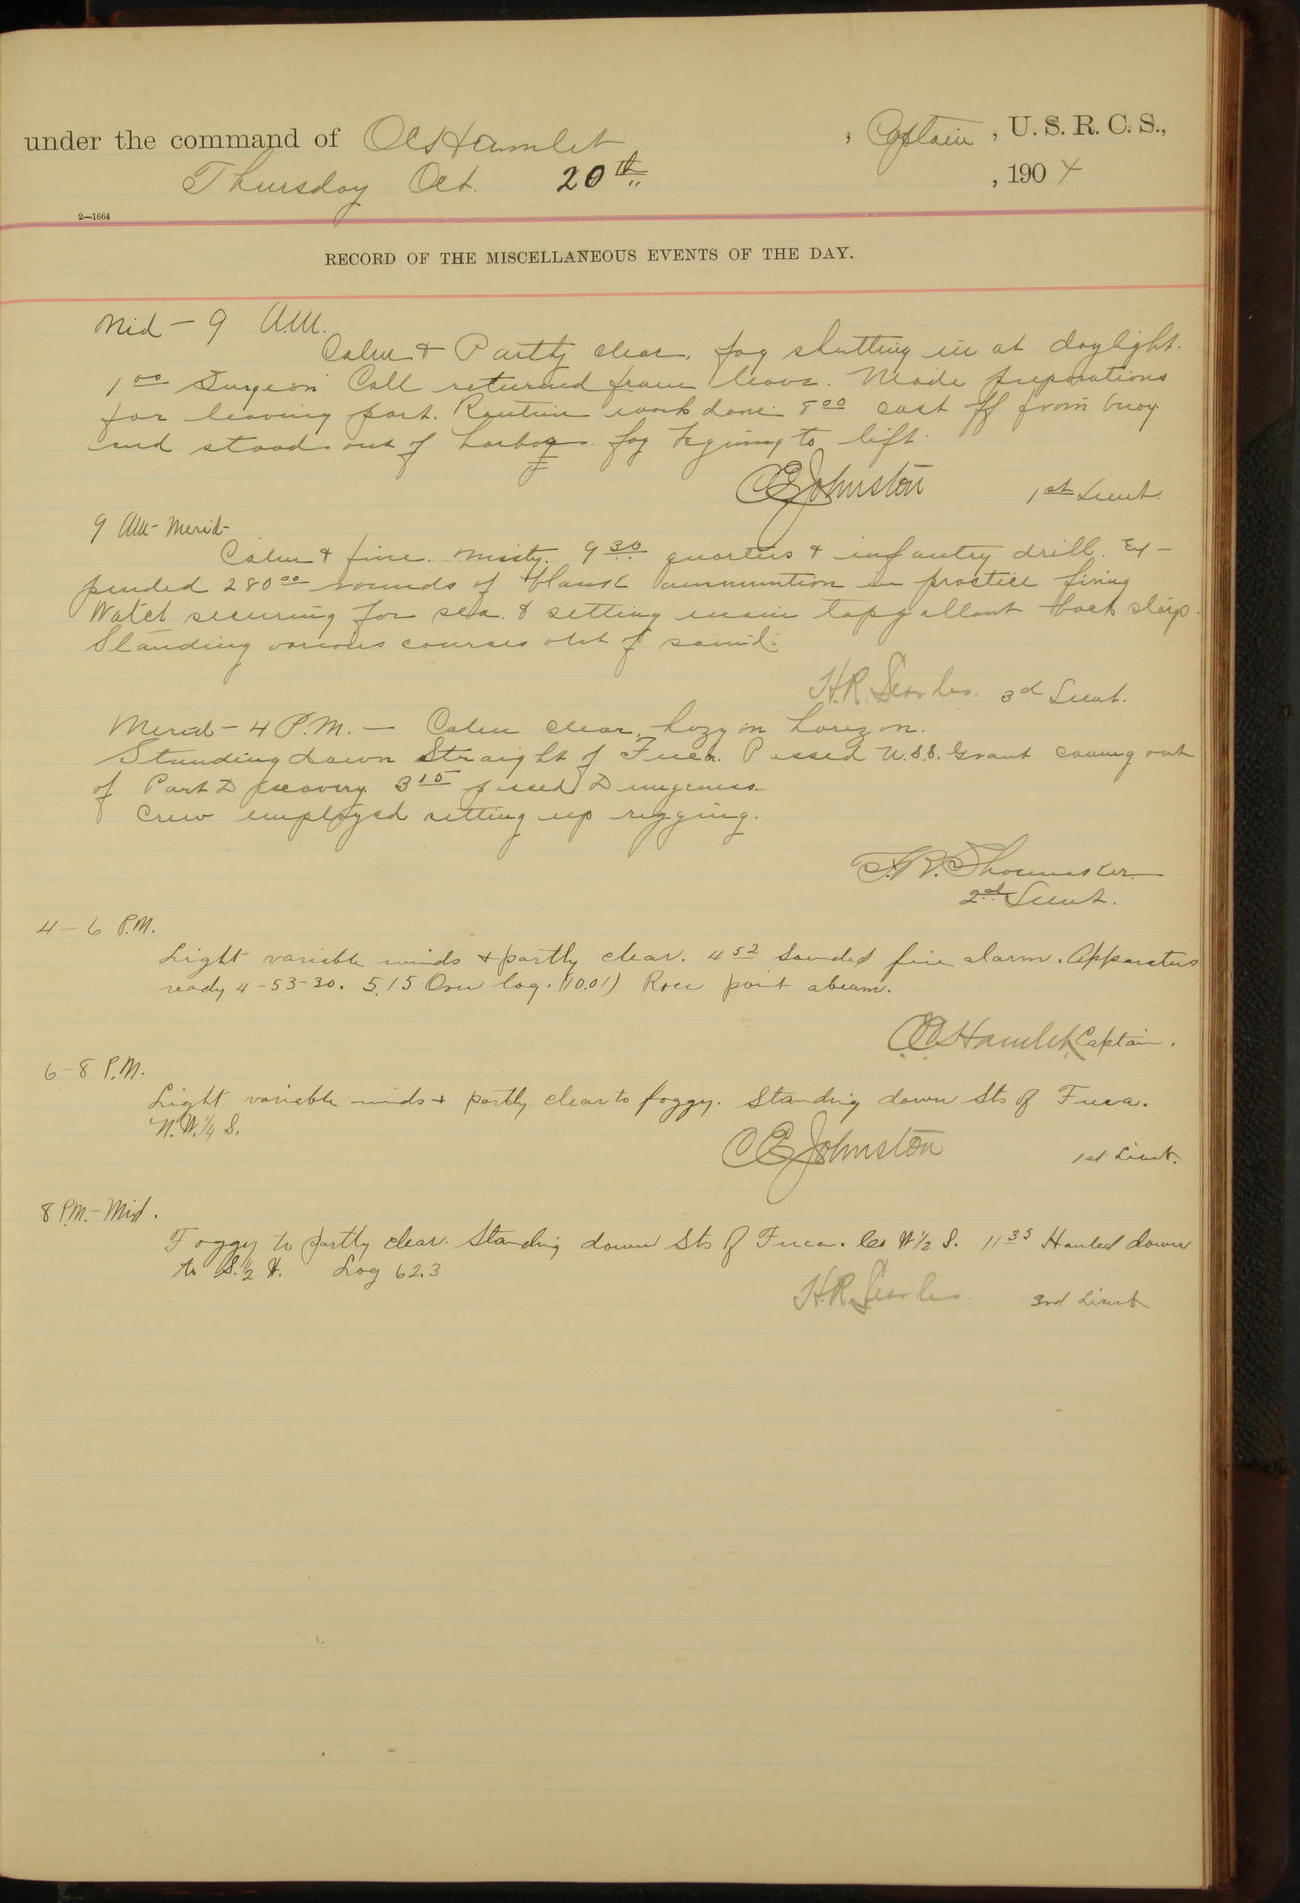 under the command of O C Hamlet, Captain, U. S. R. C. S.,
Thursday Oct. 20th, 1904
2—1664
RECORD OF THE MISCELLANEOUS EVENTS OF THE DAY.
Mid – 9 A.M.
Calm & Partly clear, fog shutting in at daylight.
1 00 Surgeon Call returned from leave. Made preparations
for leaving port. Routine work done. 8 00 cast off from buoy
and stood out of harbor. fog beginning to lift.
C E Johnston 1st Lieut.
9 AM – Merid –
Calm & fine. Misty. 9 30 quarters & infantry drill. Ex –
pended 280 00 rounds of blank ammunition in practice firing
Watch securing for sea & setting main topgallant back stays.
Standing various courses out of sound.
H.R. Searles. 3d Lieut.
Merid – 4 P.M. – Calm clear, hazy on horizon.
Standing down Straight of Fuca. Passed U.S.S. Grant coming out
of Port Discovery. 3 15 passed Dungeness.
Crew employed setting up rigging.
2nd Lieut.
4 – 6 P.M.
Light variable winds & partly clear. 4 52 Sounded fire alarm. Apparatus
ready 4-53-30. 5.15 Over log. (10.01) Race point abeam.
O C Hamlet, Captain.
6 – 8 P.M.
Light variable winds & partly clear to foggy. Standing down Sts of Fuca.
N.W. 1/4 S.
C E Johnston 1st Lieut.
8 P.M. – Mid.
Foggy to partly clear. Standing down Sts of Fuca. W 1/2 S. 11 35 Hauled down
to S. 1/2 W. Log 62.3
H.R. Searles 3rd Lieut